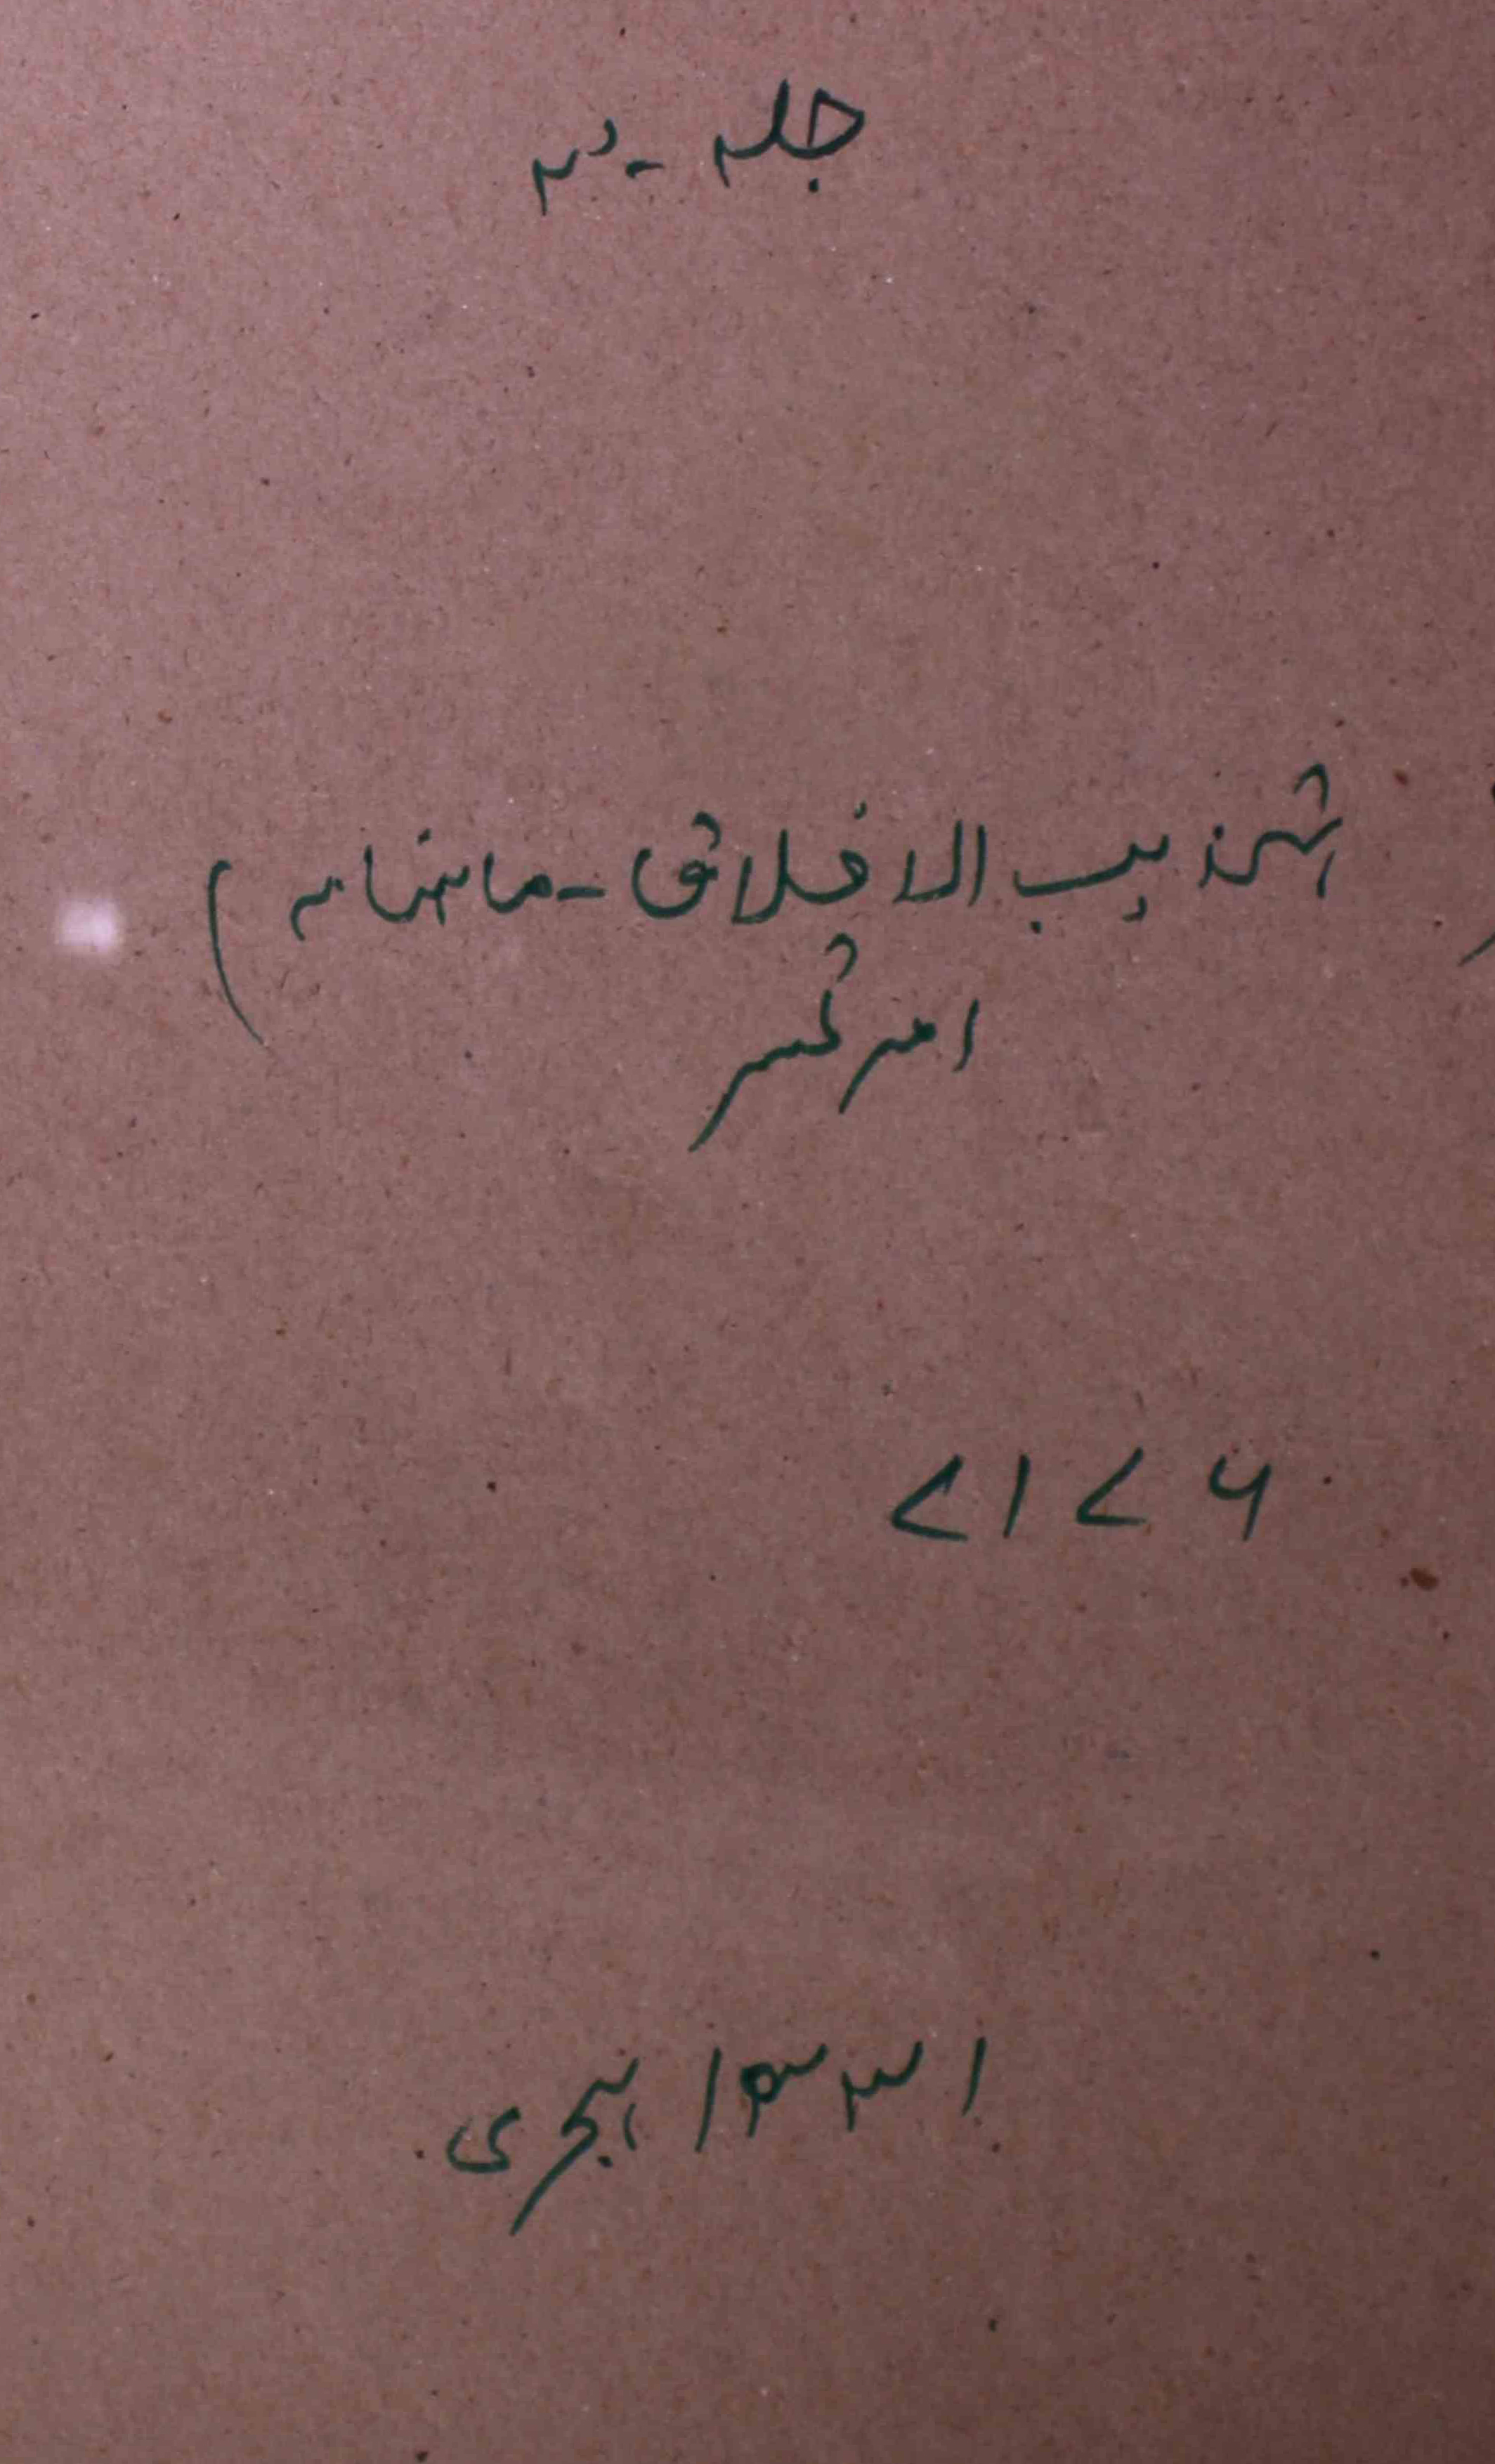 جلد -
(تہذیب الاخلاق - ماہنامہ)
امرتسر
۷۱۷۶
۱۳۳۱ ہجری